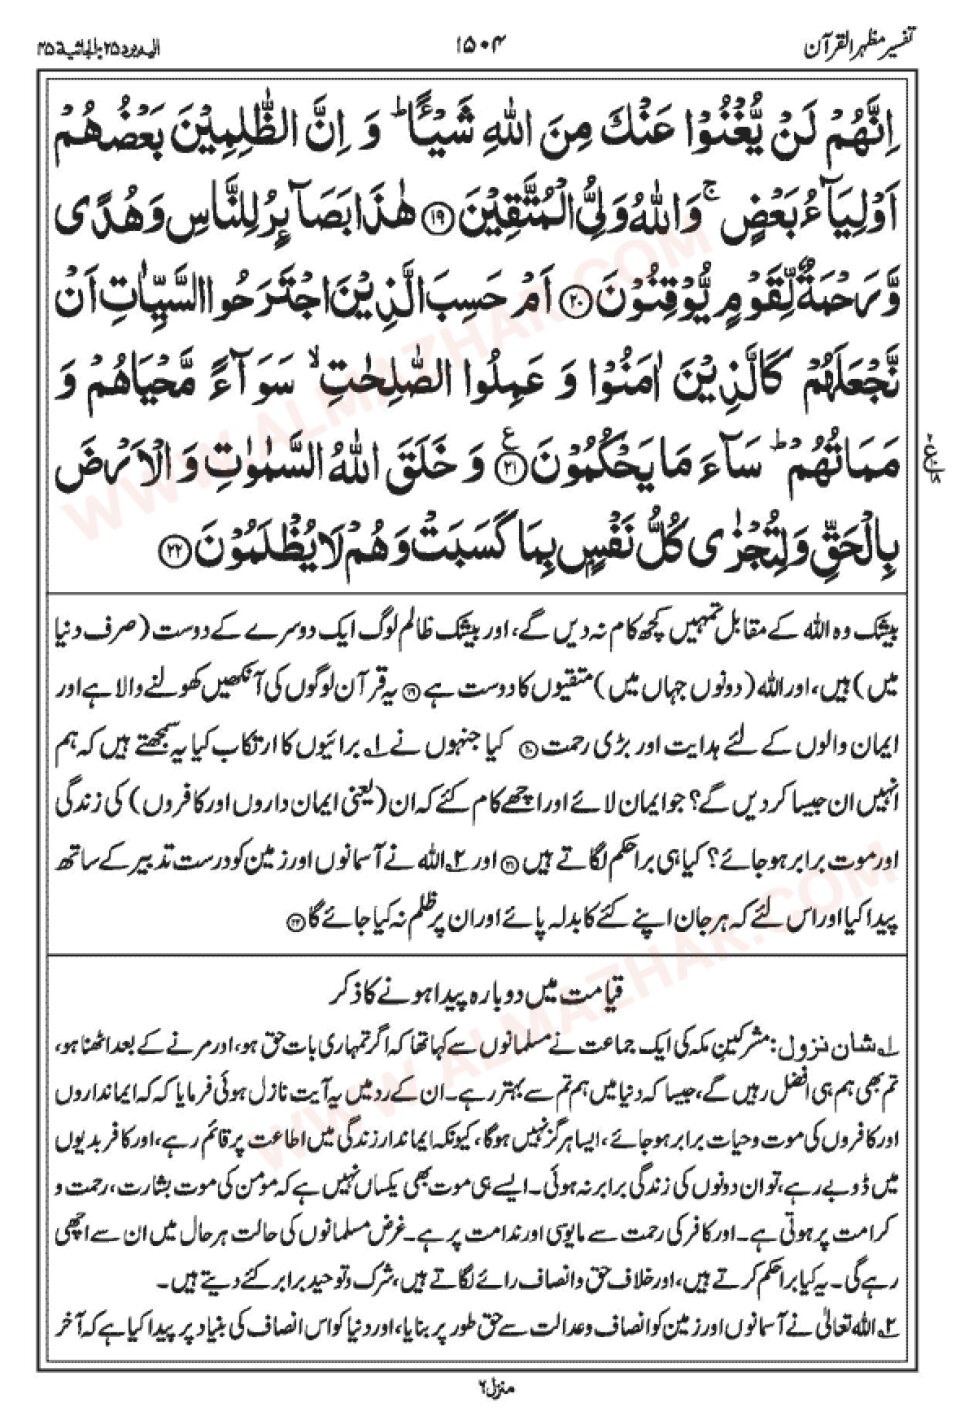 تفسیر مظہر القرآن
۱۵۰۴
الیہ یرد ۲۵ : الجاثیۃ ۴۵
اِنَّهُمْ لَنْ يُّغْنُوْا عَنْكَ مِنَ اللّٰهِ شَيْـًٔا ؕ وَ اِنَّ الظّٰلِمِيْنَ بَعْضُهُمْ
اَوْلِيَآءُ بَعْضٍ ۚ وَاللّٰهُ وَلِىُّ الْمُتَّقِيْنَ ﴿۱۹﴾ هٰذَا بَصَآىِٕرُ لِلنَّاسِ وَهُدًى
وَّرَحْمَةٌ لِّقَوْمٍ يُّوْقِنُوْنَ ﴿۲۰﴾ اَمْ حَسِبَ الَّذِيْنَ اجْتَرَحُوا السَّيِّاٰتِ اَنْ
نَّجْعَلَهُمْ كَالَّذِيْنَ اٰمَنُوْا وَ عَمِلُوا الصّٰلِحٰتِ ۙ سَوَآءً مَّحْيَاهُمْ وَ
مَمَاتُهُمْ ؕ سَآءَ مَا يَحْكُمُوْنَ ﴿۲۱﴾ ع وَ خَلَقَ اللّٰهُ السَّمٰوٰتِ وَ الْاَرْضَ
بِالْحَقِّ وَلِتُجْزٰى كُلُّ نَفْسٍۭ بِمَا كَسَبَتْ وَهُمْ لَا يُظْلَمُوْنَ ﴿۲۲﴾
بیشک وہ اللہ کے مقابل تمہیں کچھ کام نہ دیں گے، اور بیشک ظالم لوگ ایک دوسرے کے دوست (صرف دنیا
میں) ہیں، اور اللہ (دونوں جہاں میں) متقیوں کا دوست ہے ﴿۱۹﴾ یہ قرآن لوگوں کی آنکھیں کھولنے والا ہے اور
ایمان والوں کے لئے ہدایت اور بڑی رحمت ﴿۲۰﴾ کیا جنہوں نے ۱ برائیوں کا ارتکاب کیا یہ سمجھتے ہیں کہ ہم
انہیں ان جیسا کر دیں گے؟ جو ایمان لائے اور اچھے کام کئے کہ ان (یعنی ایمان داروں اور کافروں) کی زندگی
اور موت برابر ہو جائے؟ کیا ہی برا حکم لگاتے ہیں ﴿۲۱﴾ اور ۲ اللہ نے آسمانوں اور زمین کو درست تدبیر کے ساتھ
پیدا کیا اور اس لئے کہ ہر جان اپنے کئے کا بدلہ پائے اور ان پر ظلم نہ کیا جائے گا ﴿۲۲﴾
قیامت میں دوبارہ پیدا ہونے کا ذکر
۱ شان نزول: مشرکین مکہ کی ایک جماعت نے مسلمانوں سے کہا تھا کہ اگر تمہاری بات حق ہو، اور مرنے کے بعد اٹھنا ہو،
تم بھی ہم ہی افضل رہیں گے، جیسا کہ دنیا میں ہم تم سے بہتر رہے۔ ان کے رد میں یہ آیت نازل ہوئی فرمایا کہ کہ ایمانداروں
اور کافروں کی موت و حیات برابر ہو جائے، ایسا ہرگز نہیں ہوگا، کیونکہ ایماندار زندگی میں اطاعت پر قائم رہے، اور کافر بدیوں
میں ڈوبے رہے، تو ان دونوں کی زندگی برابر نہ ہوئی۔ ایسے ہی موت بھی یکساں نہیں ہے کہ مومن کی موت بشارت، رحمت و
کرامت پر ہوتی ہے۔ اور کافر کی رحمت سے مایوسی اور ندامت پر ہے۔ غرض مسلمانوں کی حالت ہر حال میں ان سے اچھی
رہے گی۔ یہ کیا برا حکم کرتے ہیں، اور خلاف حق و انصاف رائے لگاتے ہیں، شرک و توحید برابر کئے دیتے ہیں۔
۲ اللہ تعالیٰ نے آسمانوں اور زمین کو انصاف و عدالت سے حق طور پر بنایا، اور دنیا کو اس انصاف کی بنیاد پر پیدا کیا ہے کہ آخر
منزل ۶
WWW.ALMAZHAR.COM
WWW.ALMAZHAR.COM